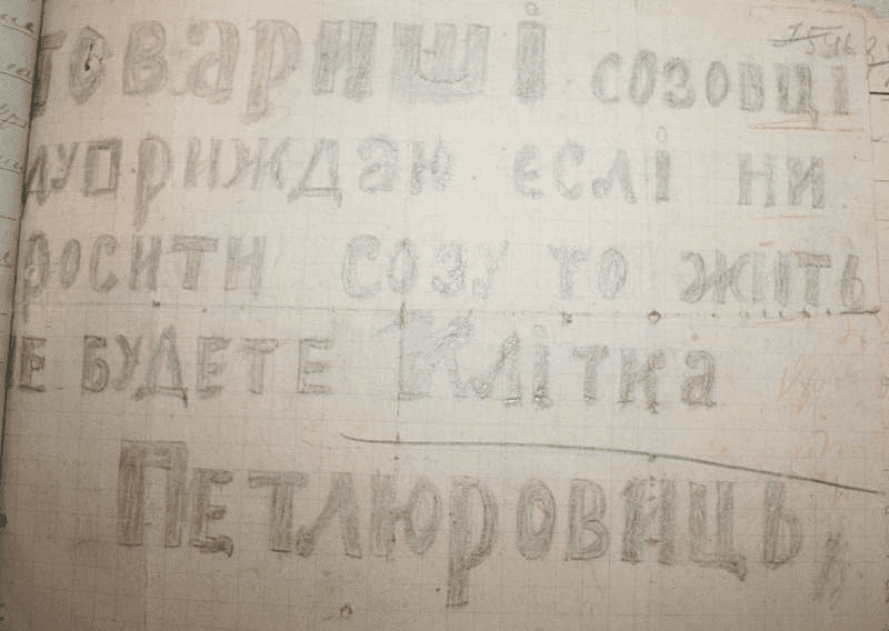 товариші созовці
дуприждаю єслі ни
росити созу то жить
Е БУДЕТЕ Клітка
Петлюровиць